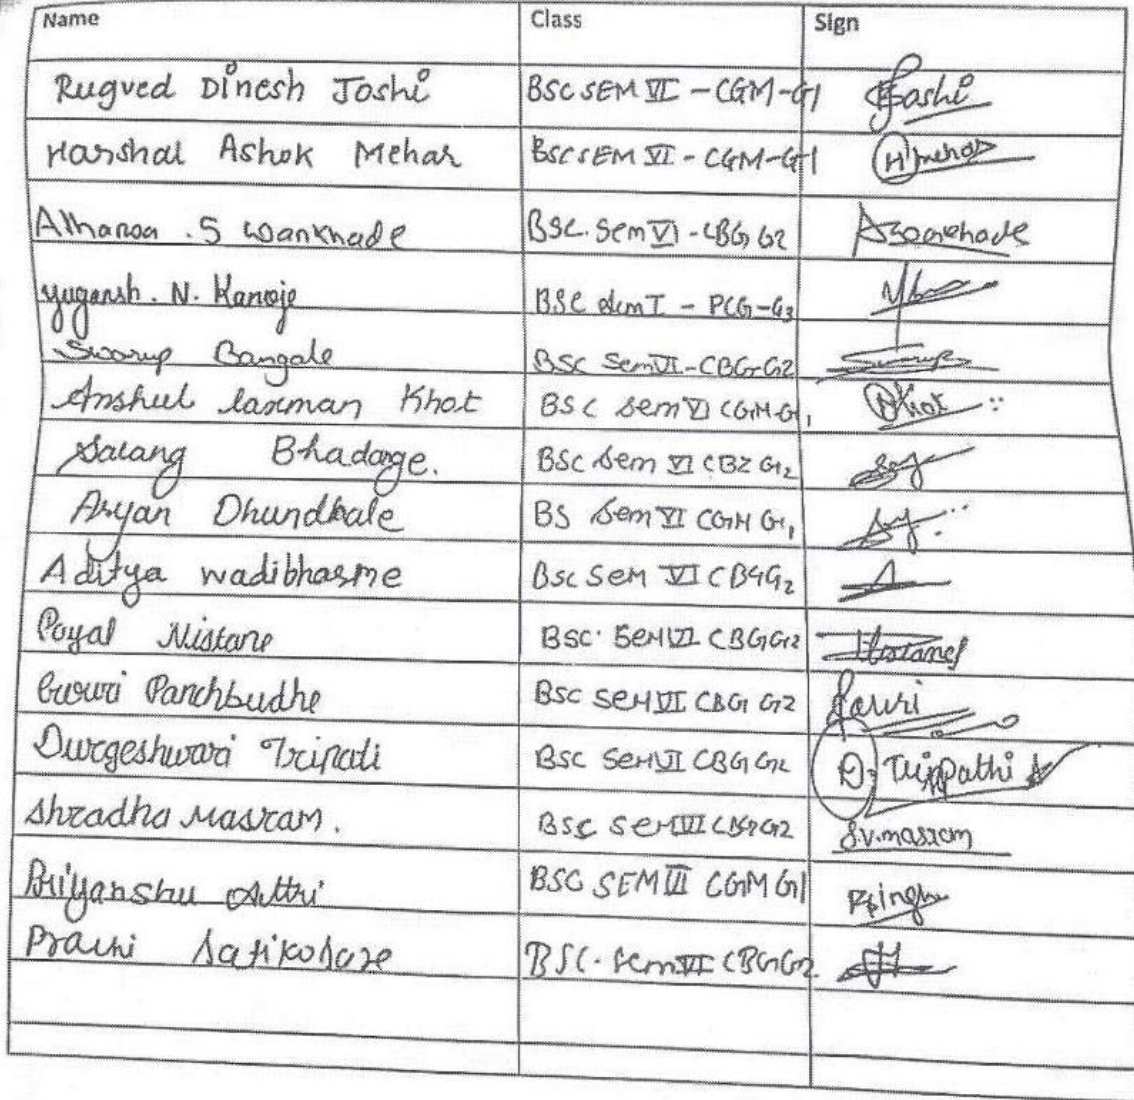 Name Class Sign
Rugved Dinesh Joshi BSC SEM VI - CGM-G1 Joshi
Harshal Ashok Mehar BSC SEM VI - CGM-G1 H mehar
S Wankhade BSC. Sem VI - CBG G2 Aswankhade
Yugansh. N. Kanoje BSC Sem I - PCG-G3
Swarup Bangale BSC Sem VI - CBG-G2 Swarup
Anshul laxman Khot BSC Sem VI CGM G1 AKhot
Sarang Bhadange. BSC Sem VI CBZ G2
Aryan Dhundkale BS Sem VI CGM G1
Aditya wadibhasme BSC SEM VI CBG G2 A
Payal Nistane BSC. SEM VI CBG G2
Gauri Panchbudhe BSC SEM VI CBG G2 Gauri
Durgeshwari Tripati BSC SEM VI CBG G2 D. Trippathi
Shradha Masram. BSC SEM VI CBG G2 S.V.masram
Priyanshu Attri BSC SEM VI CGM G1 Psingh
Prachi Satikosare BSC. Sem VI CBG G2